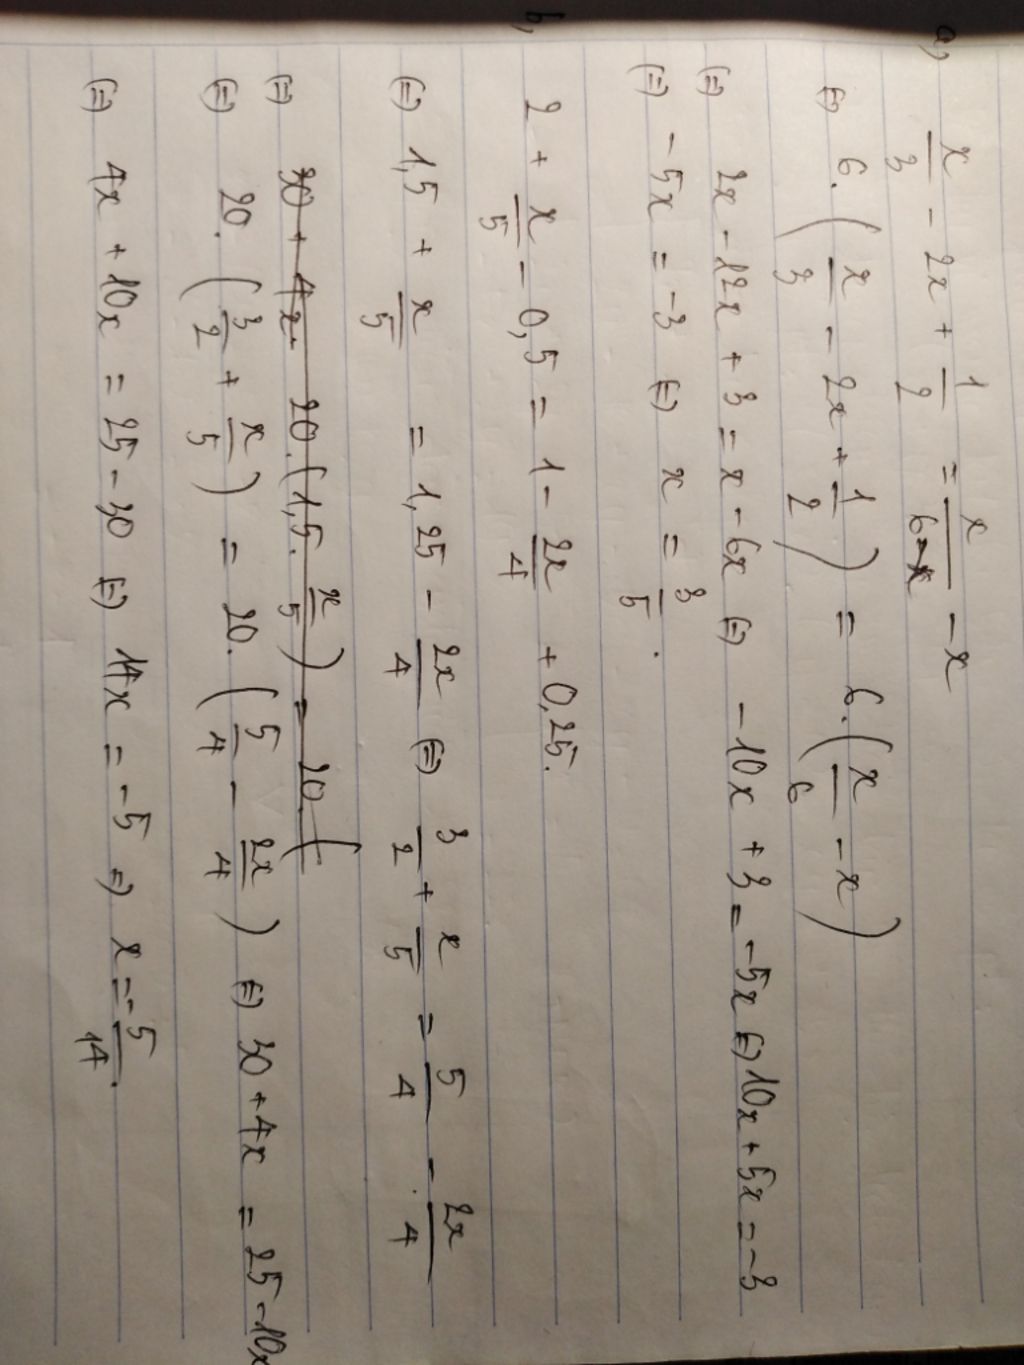 a, x/3 - 2x + 1/2 = x/6 - x
(=) 6.(x/3 - 2x + 1/2) = 6.(x/6 - x)
(=) 2x - 12x + 3 = x - 6x (=) -10x + 3 = -5x (=) 10x + 5x = -3
(=) -5x = -3 (=) x = 3/5.
b, 2 + x/5 - 0,5 = 1 - 2x/4 + 0,25.
(=) 1,5 + x/5 = 1,25 - 2x/4 (=) 3/2 + x/5 = 5/4 - 2x/4
(=) 30 + 4x 20.(1,5. x/5) = 20.(
(=) 20.(3/2 + x/5) = 20.(5/4 - 2x/4) (=) 30 + 4x = 25 - 10x
(=) 4x + 10x = 25 - 30 (=) 14x = -5 =) x = -5/14.